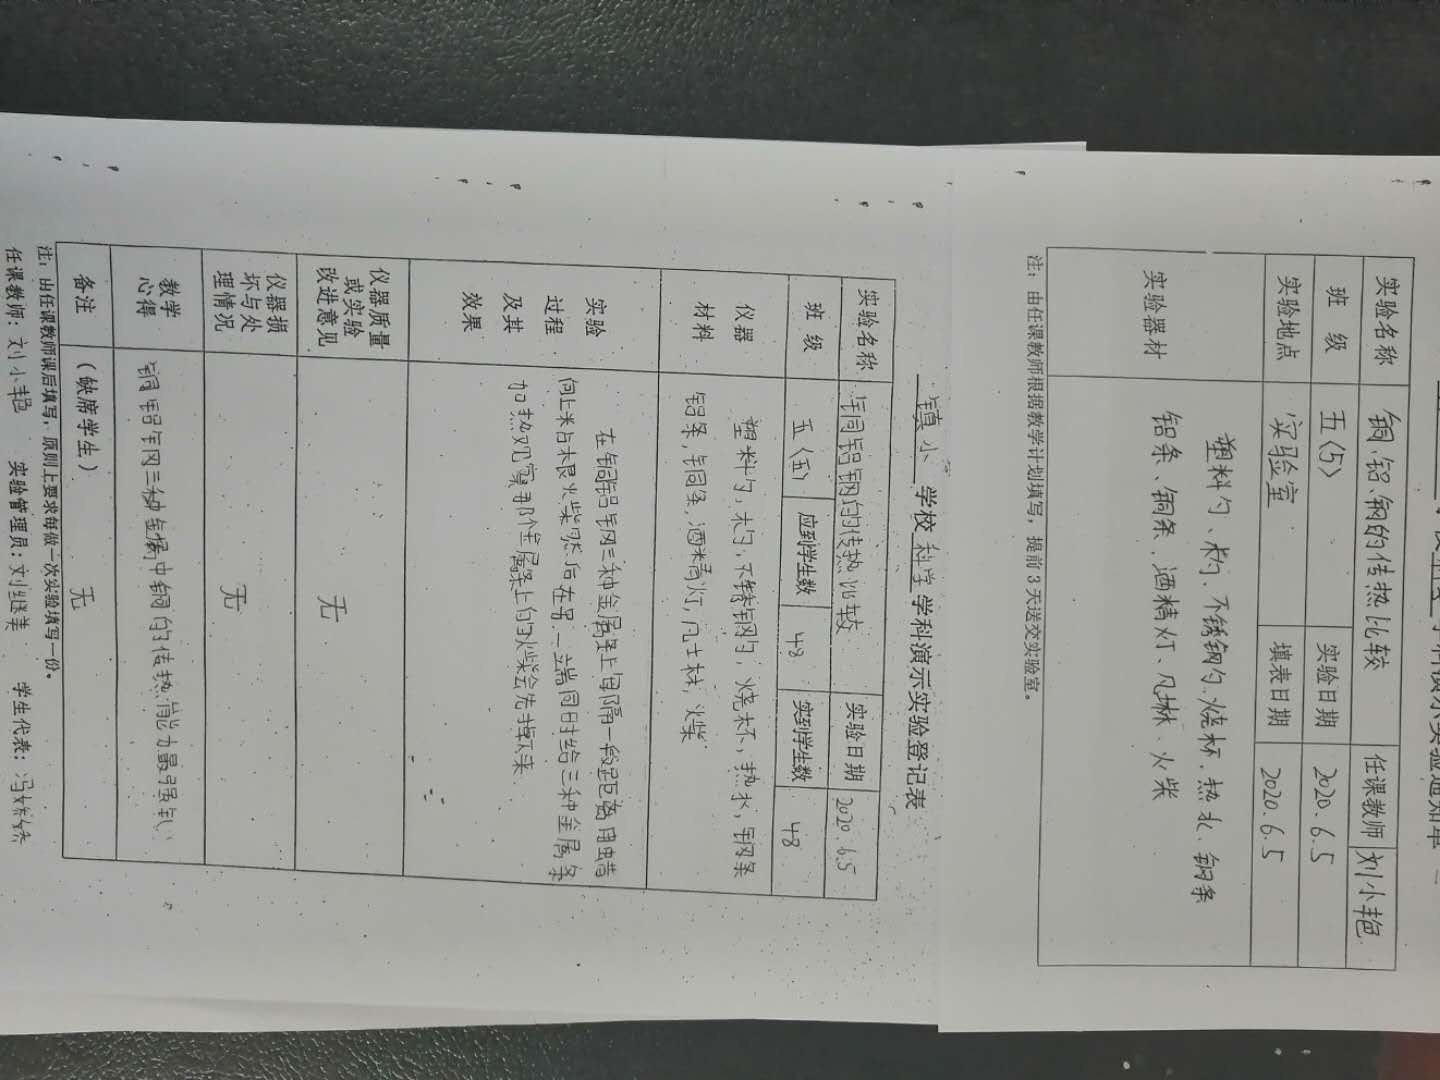 实验名称 铜、铝、钢的传热比较 任课教师 刘小艳
班 级 五(5) 实验日期 2020.6.5
实验地点 实验室 填表日期 2020.6.5
实验器材
塑料勺、木勺、不锈钢勺、烧杯、热水、钢条
铝条、铜条、酒精灯、凡士林、火柴
注：由任课教师根据教学计划填写，提前3天送交实验室。
镇小 学校 科学 学科演示实验登记表
实验名称 铜铝钢的传热比较 实验日期 2020.6.5
班 级 五(五) 应到学生数 48 实到学生数 48
仪器
材料
塑料勺，木勺，不锈钢勺，烧杯，热水，钢条
铝条，铜条，酒精灯，凡士林，火柴
实验
过程
及其
效果
在铜铝钢三种金属条上每隔一段距离用蜡
向上粘根火柴然后在另一端同时给三种金属条
加热观察那个金属条上的火柴会先掉下来
仪器质量
或实验
改进意见
无
仪器损
坏与处
理情况
无
教学
心得
铜铝钢三种金属中铜的传热能力最强
备注 (缺席学生) 无
注：由任课教师课后填写，原则上要求每做一次实验填写一份。
任课教师：刘小艳 实验管理员：刘继美 学生代表：冯